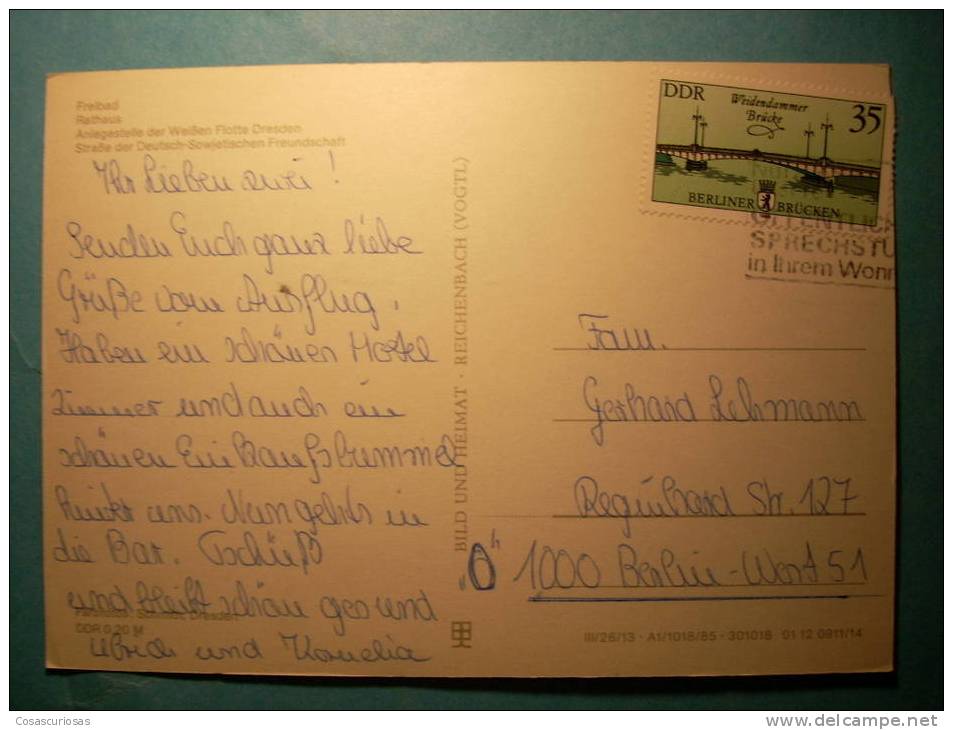 Freibad
Rathaus
Anlegestelle der Weißen Flotte Dresden
Straße der Deutsch-Sowjetischen Freundschaft
Ihr Lieben zwei!
Senden Euch ganz liebe
Grüße vom Ausflug.
Haben ein schönen Hotel
zimmer und auch ein
schönen Einkaufsbummel
hinter uns. Nun gehts in
die Bar. Tschüß
und bleibt schön gesund
Ulrich und Kornelia
DDR 0,20 M
BILD UND HEIMAT · REICHENBACH (VOGTL)
DDR
Weidendammer
Brücke
35
BERLINER BRÜCKEN
ÖFFENTLICH
SPRECHSTU
in Ihrem Wohn
Fam.
Gerhard Lehmann
Reginhard Str. 127
"O" 1000 Berlin-West 51
III/26/13 · A1/1018/85 · 301018 01 12 0911/14
Cosascuriosas
www.delcampe.net